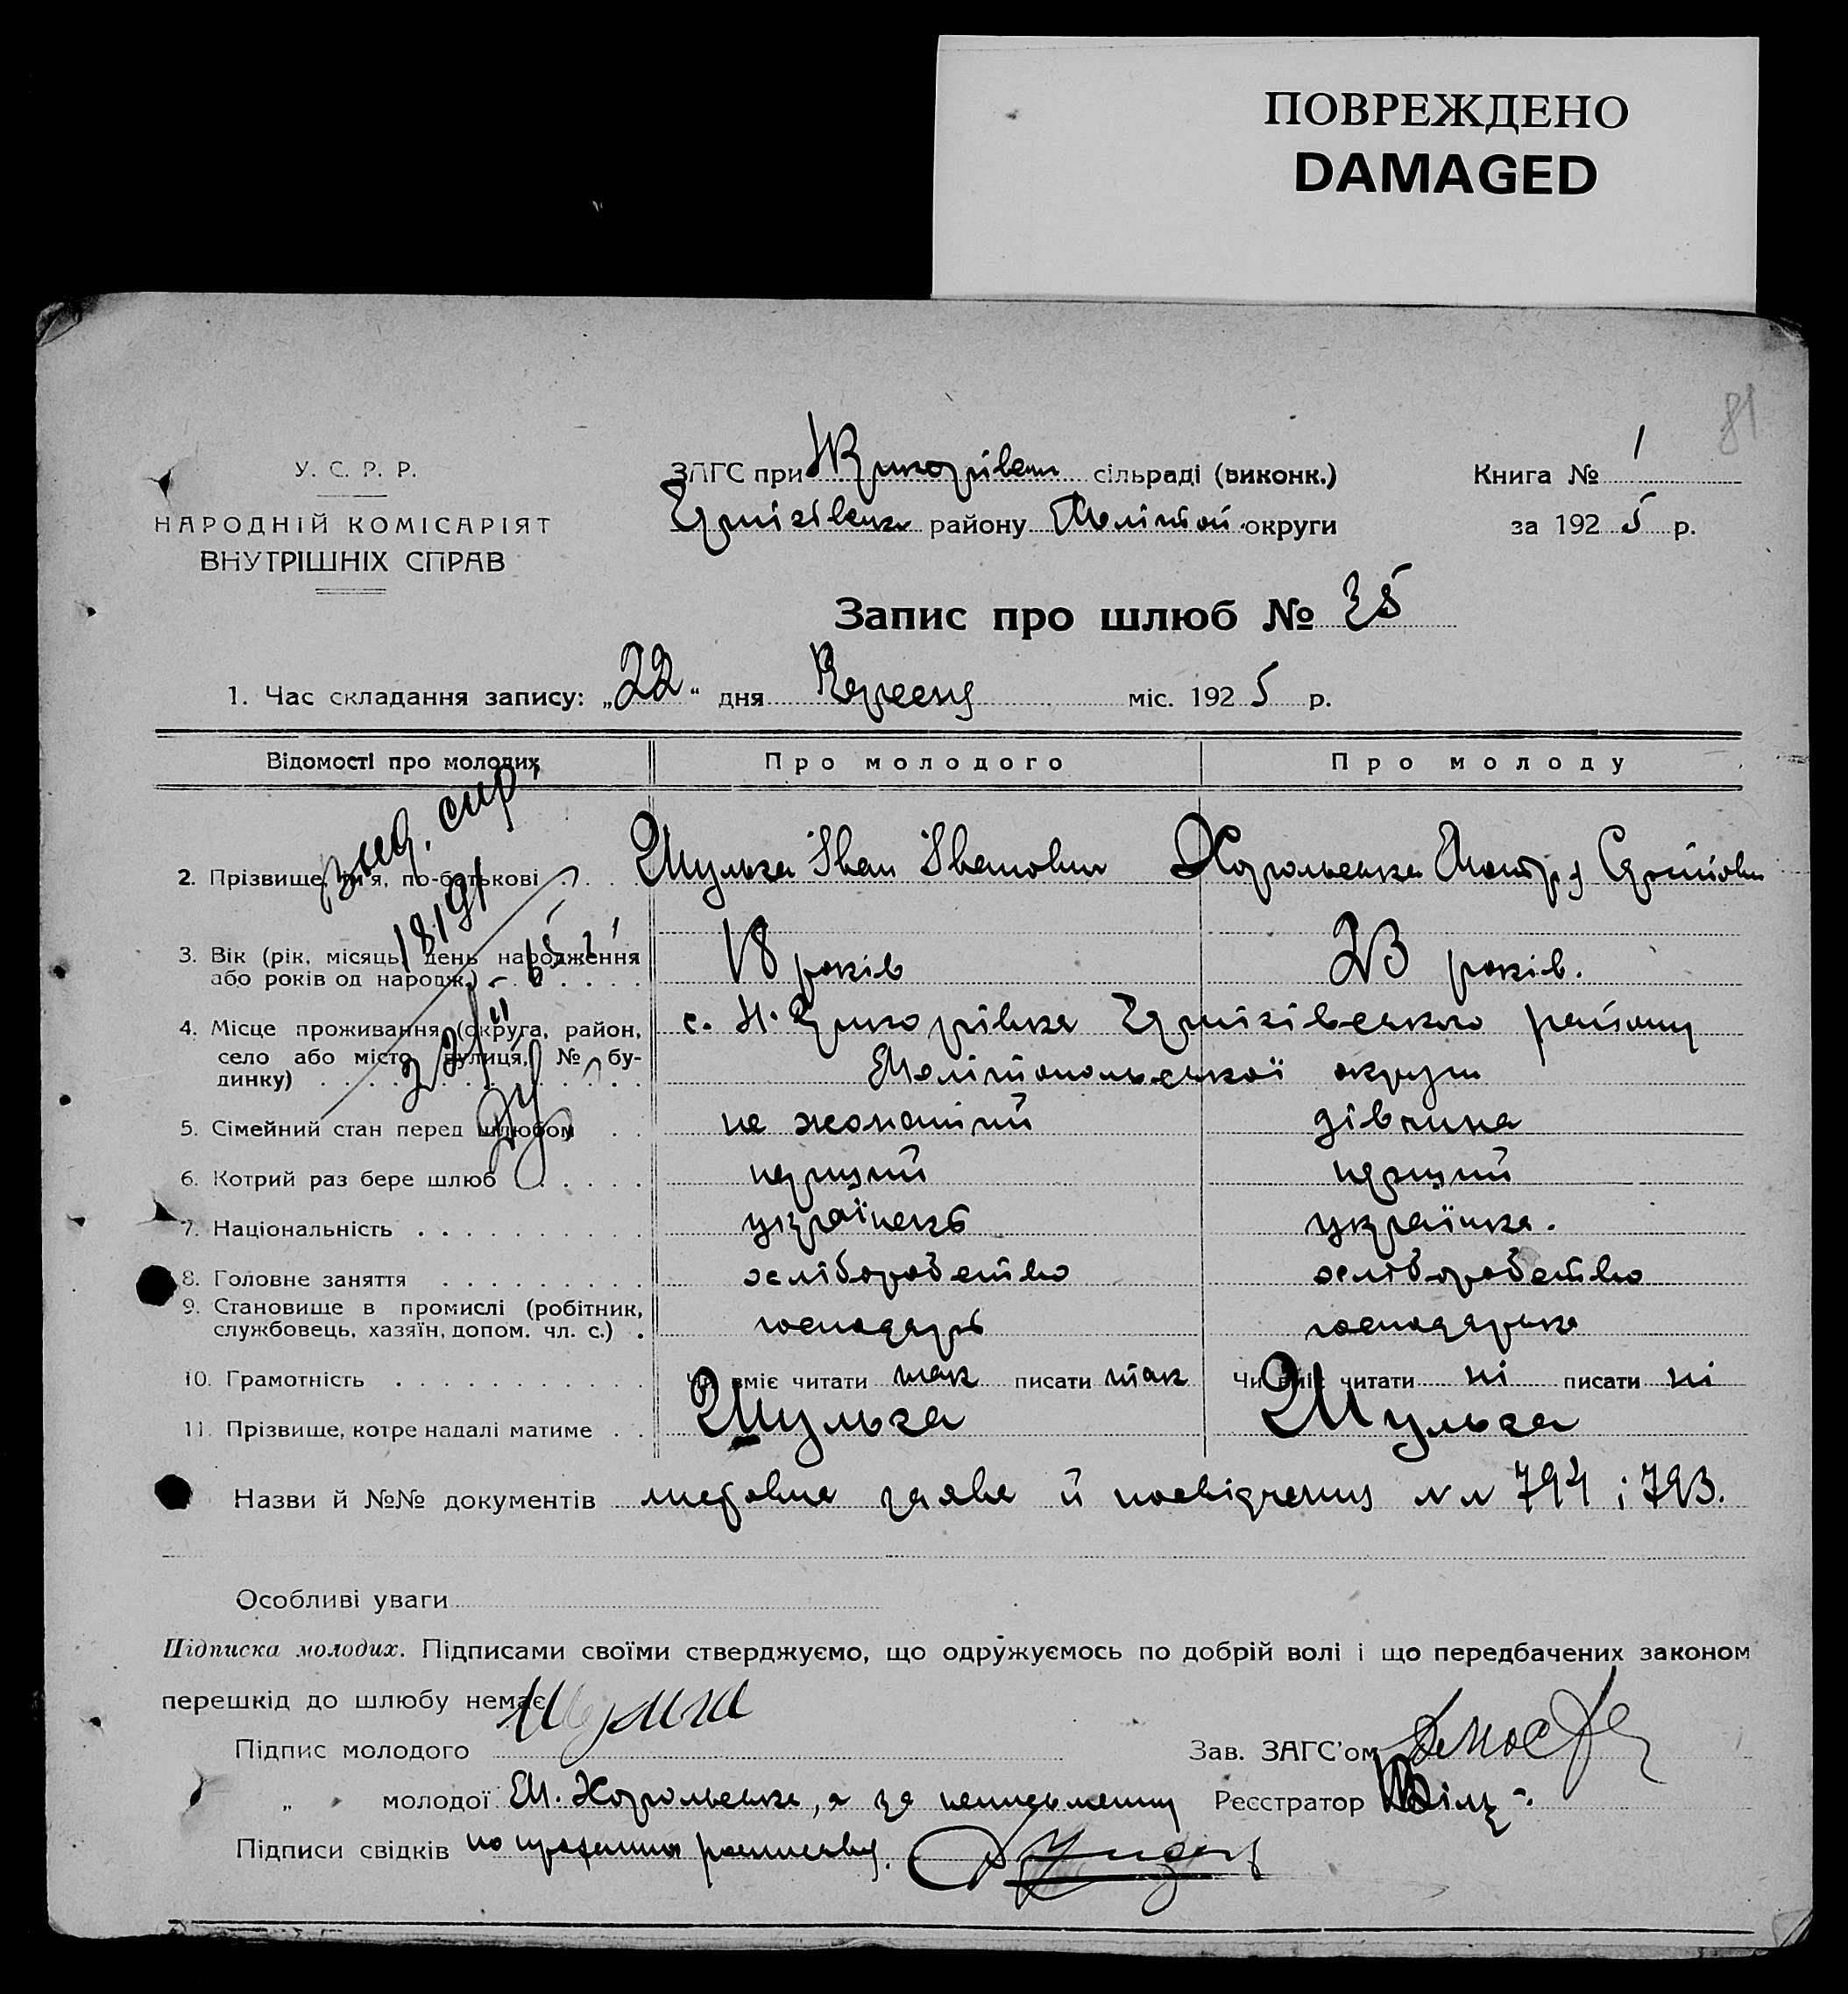 ПОВРЕЖДЕНО
DAMAGED
81
У. С. Р. Р.
НАРОДНІЙ КОМІСАРІЯТ
ВНУТРІШНІХ СПРАВ
ЗАГС при сільраді (виконк.)
району округи
Книга № 1
за 1925 р.
Запис про шлюб № 35
1. Час складання запису: „22“ дня Вересня міс. 1925 р.
Відомості про молодих Про молодого Про молоду
2. Прізвище, ім'я, по-батькові . . . . Шульга Іван Іванович Хорольська Мотря
3. Вік (рік, місяць, день народження 18 років 23 років.
або років од народж.)
4. Місце проживання (округа, район, с. Н. Григорівка района
село або місто, вулиця, № бу- Мелітопольської округи
динку)
5. Сімейний стан перед шлюбом . . не жонатий дівчина
6. Котрий раз бере шлюб . . . . . перший перший
7. Національність . . . . . . . . . . українець українка.
8. Головне заняття . . . . . . . . . хліборобство хліборобство
9. Становище в промислі (робітник,
службовець, хазяїн, допом. чл. с.) . господарь господарька
10. Грамотність . . . . . . . . . . . Чи вміє читати так писати так Чи вміє читати ні писати ні
11. Прізвище, котре надалі матиме . . Шульга Шульга
Назви й №№ документів заява й посвідчення №№ 794 і 793.
Особливі уваги
Підписка молодих. Підписами своїми стверджуємо, що одружуємось по добрій волі і що передбачених законом
перешкід до шлюбу немає
Підпис молодого Шульга Зав. ЗАГС'ом
„ молодої М. Хорольська, а за неписьменну Реєстратор
Підписи свідків по